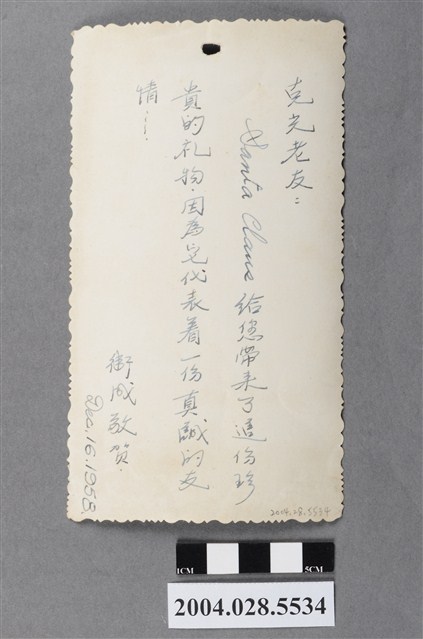 克光老友：
Santa Claus 給您帶来了這份珍
貴的礼物，因為它代表着一份真誠的友
情…
衛成敬賀.
Dec. 16. 1958.
2004.28.5534
1CM
5CM
2004.028.5534